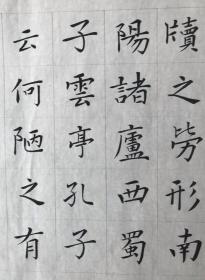 牘之勞形南
陽諸廬西蜀
子雲亭孔子
云何陋之有